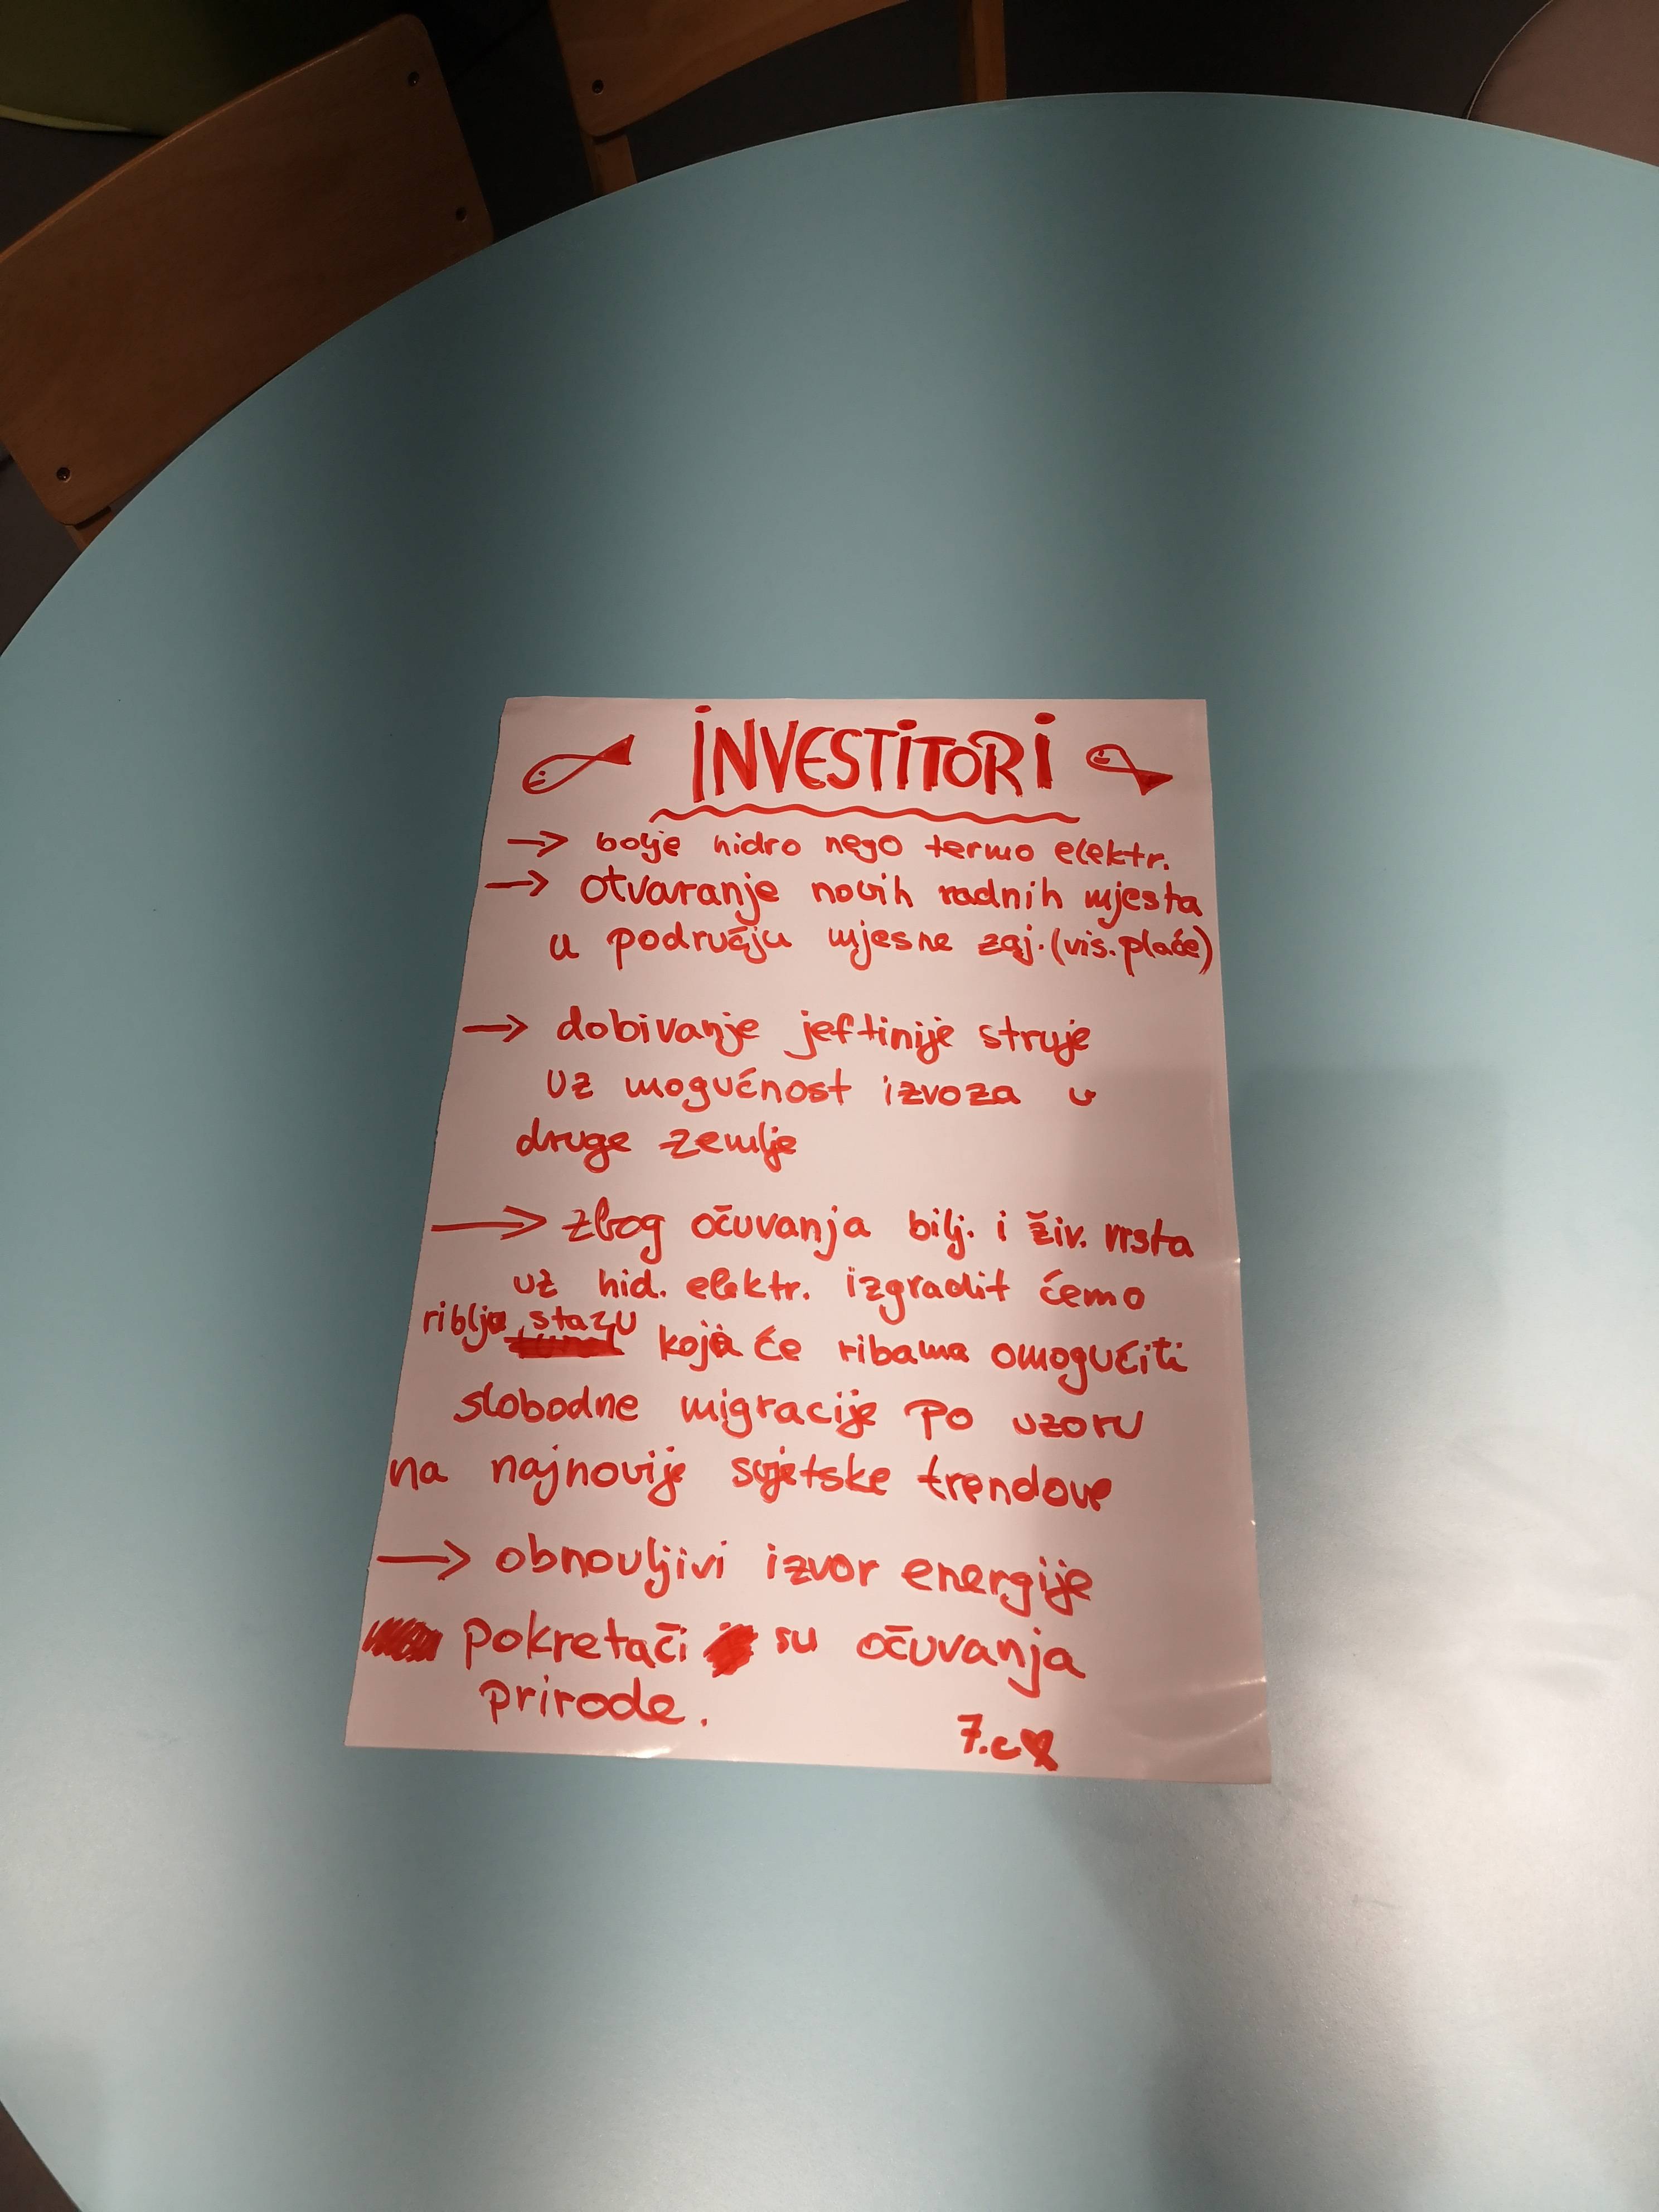 INVESTITORI
→ bolje hidro nego termo elektr.
→ otvaranje novih radnih mjesta
u području mjesne zaj. (vis. plaće)
→ dobivanje jeftinije struje
uz mogućnost izvoza u
druge zemlje
→ zbog očuvanja bilj. i živ. vrsta
uz hid. elektr. izgradit ćemo
riblju stazu
koja će ribama omogućiti
slobodne migracije po uzoru
na najnovije svjetske trendove
→ obnovljivi izvor energije
pokretači su očuvanja
prirode.
7.c